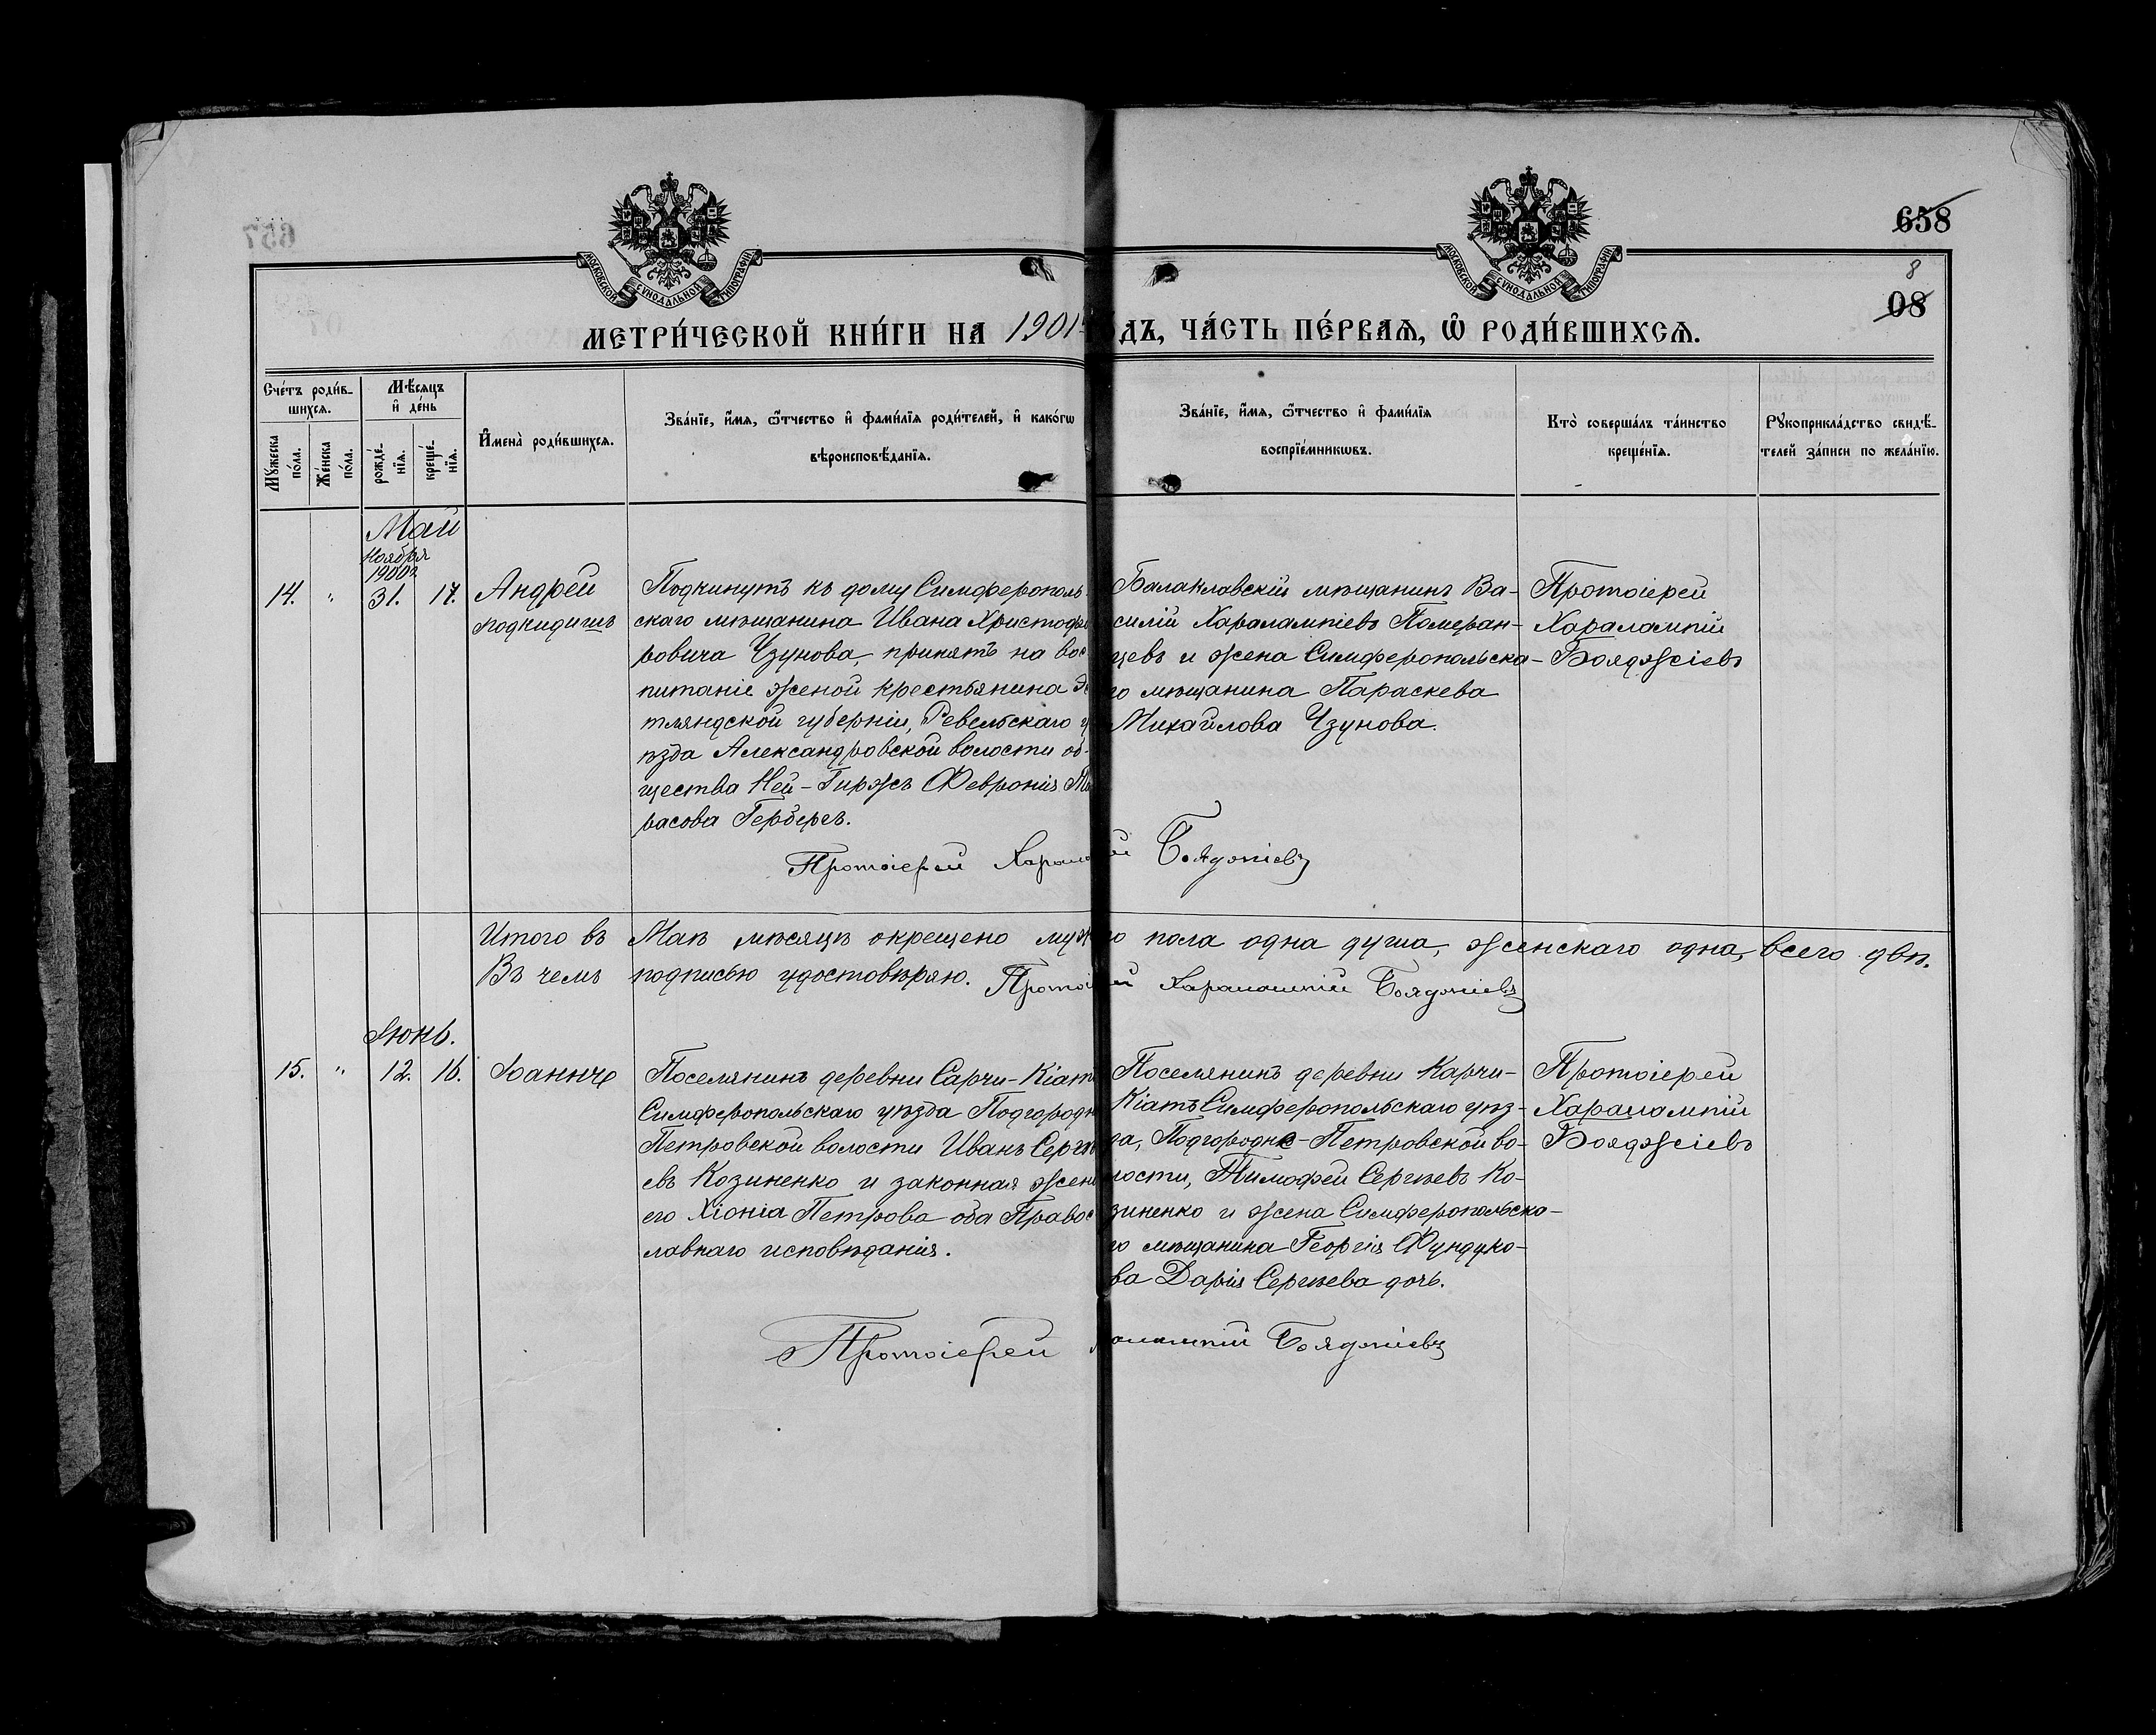 658
8
08
МОСКОВСКОЙ СѴНОДАЛЬНОЙ ТИПОГРАФІИ
МОСКОВСКОЙ СѴНОДАЛЬНОЙ ТИПОГРАФІИ
МЕТРИ́ЧЕСКОЙ КНИ́ГИ НА 1901
ДЪ, ЧА́СТЬ ПЕ́РВАѦ, Ѡ҆ РОДИ́ВШИХСѦ.
Сче́тъ роди́в-
шихсѧ.
Мꙋжеска
по́ла.
Же́нска
пола.
Мѣ́сѧцъ
и҆ де́нь
рожде́-
нїѧ.
креще́-
нїѧ.
И҆мена̀ роди́вшихсѧ.
Зва́нїе, и҆́мѧ, ѻ҆́тчество и҆ фами́лїѧ роди́телей, и҆ како́гѡ
вѣроисповѣ́данїѧ.
Зва́нїе, и҆́мѧ, ѻ҆́тчество и҆ фами́лїѧ
воспрїе́мникѡвъ.
Кто̀ соверша́лъ та́инство
креще́нїѧ.
Рꙋкоприкла́дство свидѣ́-
телей за́писи по жела́нїю.
Май
Ноября
1900г.
14. " 31. 17. Андрей
подкидишъ
Подкинутъ къ дому Симферополь-
скаго мѣщанина Ивана Христофо
ровича Узунова, принятъ на вос
питаніе женой крестьянина Эс
тляндской губерніи, Ревельскаго у
ѣзда Александровской волости об-
щества Ней-Гиржъ Февронія Та
расова Герберг.
Балаклавскій мѣщанинъ Ва-
силій Харалампіевъ Померан-
цевъ и жена Симферопольска-
го мѣщанина Параскева
Михайлова Узунова.
Протоіерей
Харалампій
Бояджіевъ
Протоіерей Харала
й Бояджіевъ
Итого въ Маѣ мѣсяцѣ окрещено муж
о пола одна душа, женскаго одна, всего двѣ.
Въ чемъ подписью удостовѣряю. Протоі
й Харалампій Бояджіевъ
Іюнь.
15. " 12. 16. Іоаннъ
Поселянинъ деревни Сарчи-Кіатъ
Симферопольскаго уѣзда Подгородн
Петровской волости Иванъ Сергѣ
евъ Козиненко и законная жена
его Хіонія Петрова оба Правос
лавнаго исповѣданія.
Поселянинъ деревни Карчи-
Кіатъ Симферопольскаго уѣз-
да, Подгородне-Петровской во-
лости, Тимофей Сергѣевъ Ко-
зиненко и жена Симферопольска-
го мѣщанина Георгія Фундуко-
ва Дарія Сергѣева дочь.
Протоіерей
Харалампій
Бояджіевъ
Протоіерей
алампій Бояджіевъ